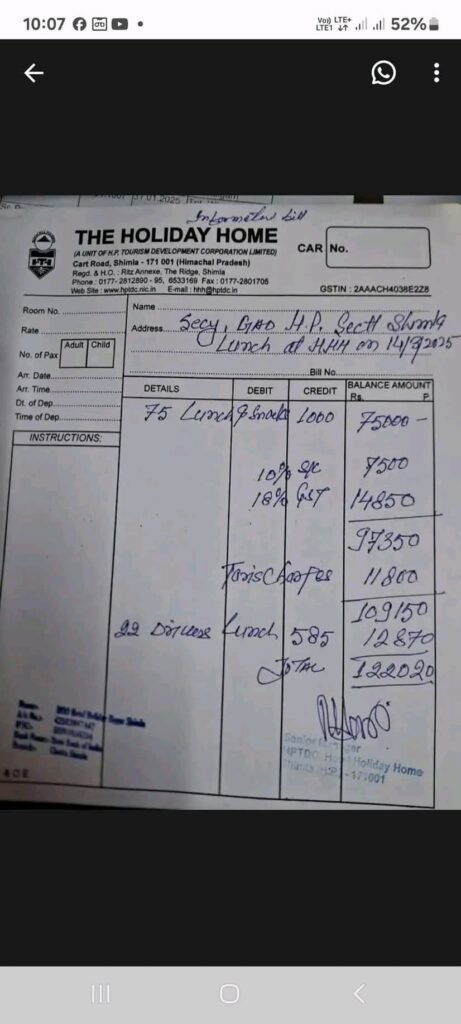 10:07
Vo) LTE+
LTE1
52%
31.01.2025
Information bill
THE HOLIDAY HOME
(A UNIT OF H.P. TOURISM DEVELOPMENT CORPORATION LIMITED)
Cart Road, Shimla - 171 001 (Himachal Pradesh)
Regd. & H.O. : Ritz Annexe, The Ridge, Shimla
Phone : 0177- 2812890 - 95, 6533169 Fax : 0177-2801705
Web Site : www.hptdc.nic.in E-mail : hhh@hptdc.in
CAR No.
GSTIN : 2AAACH4038E2Z8
Room No.
Rate
No. of Pax Adult Child
Arr. Date
Arr. Time
Dt. of Dep
Time of Dep.
INSTRUCTIONS:
Name
Address Secy, GAD H.P. Sectt Shimla
Lunch at HHH on 14/3/2025
Bill No
DETAILS DEBIT CREDIT BALANCE AMOUNT
Rs. P.
75 Lunch & Snacks 1000 75000 -
10% S/C 7500
18% GST 14850
97350
Charges 11800
109150
22 Drivers Lunch 585 12870
TOTAL 122020
Senior Manager
HPTDC Hotel Holiday Home
Shimla (H.P.) - 171001
State Bank of India
E. & O.E.